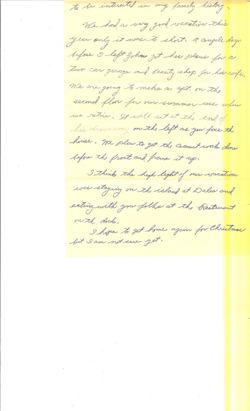 to be interested in my family history.
We had a very good vacation this
year only it was to short. A couple days
before I left John got his plans for a
two car garage and beauty shop for his wife.
We are going to make a apt. on the
second floor for our summer use when
we retire. It will set at the end of
his driveway on the left as you face the
house. We plan to get the cement work done
before the frost and frame it up.
I think the high light of our vacation
was staying on the island at Dales and
eating with you folks at the Restaurant
on the dock.
I hope to get home again for Christmas
but I am not sure yet.